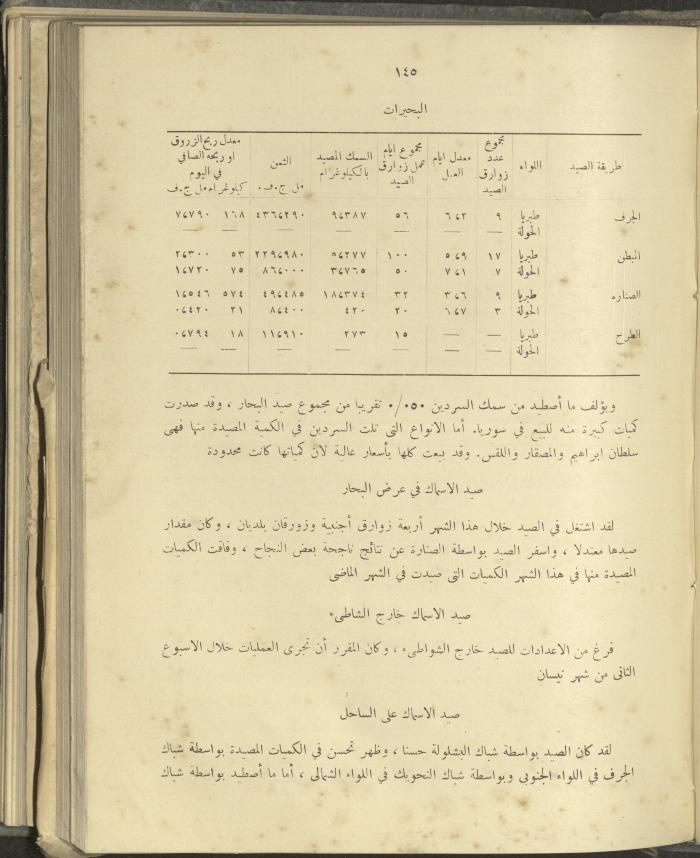 ١٤٥
البحيرات
طريقة الصيد اللواء مجموع عدد زوارق الصيد معدل ايام العمل مجموع ايام عمل زوارق الصيد السمك المصيد بالكيلوغرام الثمن مل ج.ف. معدل ربح الزورق او ربحه الصافي في اليوم كيلوغرام مل ج.ف
الجرف طبريا ٩ ٦٬٢ ٥٦ ٩٬٣٨٧ ٤٣٦٬٢٩٠ ١٦٨ ٧٬٧٩٠
الحولة — — — — — — —
البطن طبريا ١٧ ٥٬٩ ١٠٠ ٥٬٢٧٧ ٢٢٩٬٩٨٠ ٥٣ ٢٬٣٠٠
الحولة ٧ ٧٬١ ٥٠ ٣٬٧٦٥ ٨٦٬٠٠٠ ٧٥ ١٬٧٢٠
الصناره طبريا ٩ ٣٬٦ ٣٢ ١٨٬٣٧٤ ٤٩٬٤٨٥ ٥٧٤ ١٬٥٤٦
الحولة ٣ ٦٬٧ ٢٠ ٤٢٠ ٨٬٤٠٠ ٢١ ٠٬٤٢٠
الطرح طبريا — — ١٥ ٢٧٣ ١١٬٩١٠ ١٨ ٠٬٧٩٤
الحولة — — — —
ويؤلف ما أصطيد من سمك السردين ٥٠ ٠/٠ تقريبا من مجموع صيد البحار ، وقد صدرت
كميات كبيرة منه للبيع في سوريا. أما الانواع التى تلت السردين في الكمية المصيدة منها فهى
سلطان ابراهيم والمصقار واللقس. وقد بيعت كلها بأسعار عالية لان كمياتها كانت محدودة
صيد الاسماك في عرض البحار
لقد اشتغل في الصيد خلال هذا الشهر أربعة زوارق أجنبية وزورقان بلديان ، وكان مقدار
صيدها معتدلا ، واسفر الصيد بواسطة الصنارة عن نتائج ناجحة بعض النجاح ، وفاقت الكميات
المصيدة منها في هذا الشهر الكميات التى صيدت في الشهر الماضى
صيد الاسماك خارج الشاطىء
فرغ من الاعدادات للصيد خارج الشواطىء ، وكان المقرر أن تجرى العمليات خلال الاسبوع
الثانى من شهر نيسان
صيد الاسماك على الساحل
لقد كان الصيد بواسطة شباك الشلولة حسنا ، وظهر تحسن في الكميات المصيدة بواسطة شباك
الجرف في اللواء الجنوبى وبواسطة شباك التحويك في اللواء الشمالى ، أما ما أصطيد بواسطة شباك